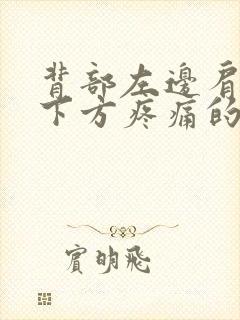 背部左邊肩
下方疼痛的
賓明飛